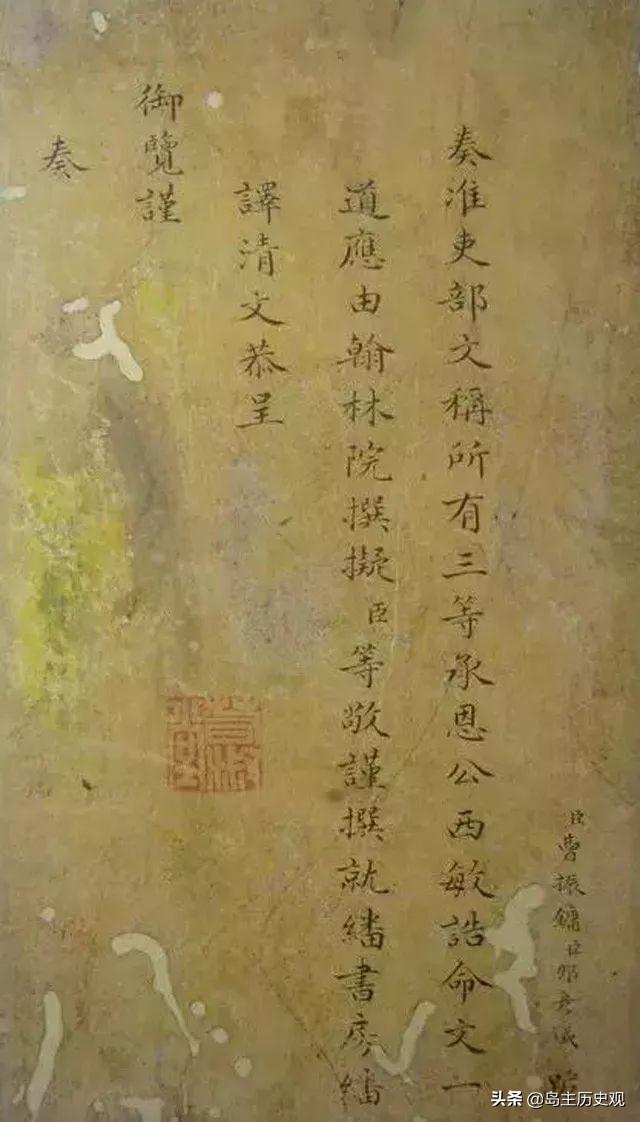 臣曹振鏞臣那彥成跪
奏准吏部文稱所有三等承恩公西敏誥命文一
道應由翰林院撰擬臣等敬謹撰就繙書房繙
譯清文恭呈
御覽謹
奏
头条 @岛主历史观